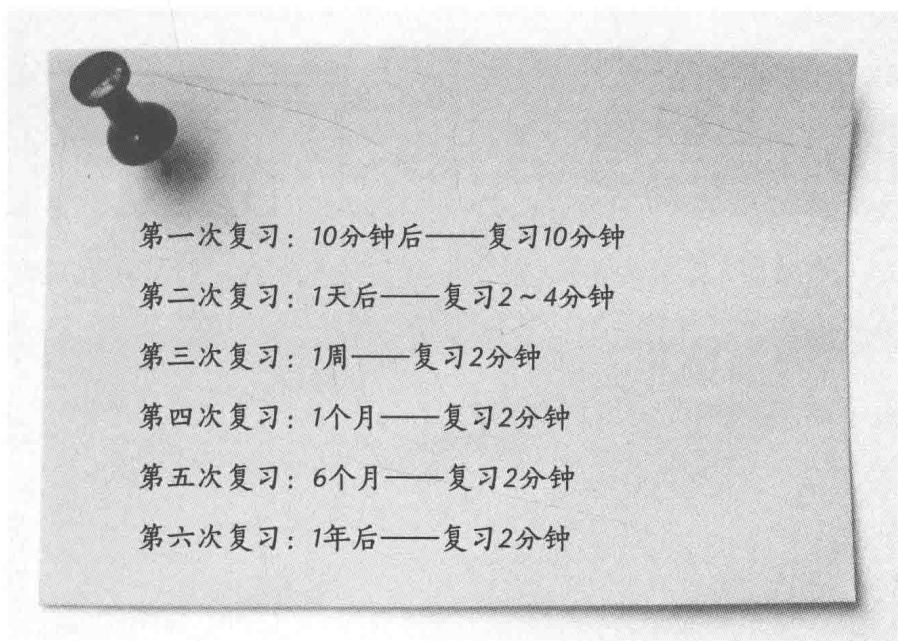 第一次复习：10分钟后——复习10分钟
第二次复习：1天后——复习2~4分钟
第三次复习：1周——复习2分钟
第四次复习：1个月——复习2分钟
第五次复习：6个月——复习2分钟
第六次复习：1年后——复习2分钟